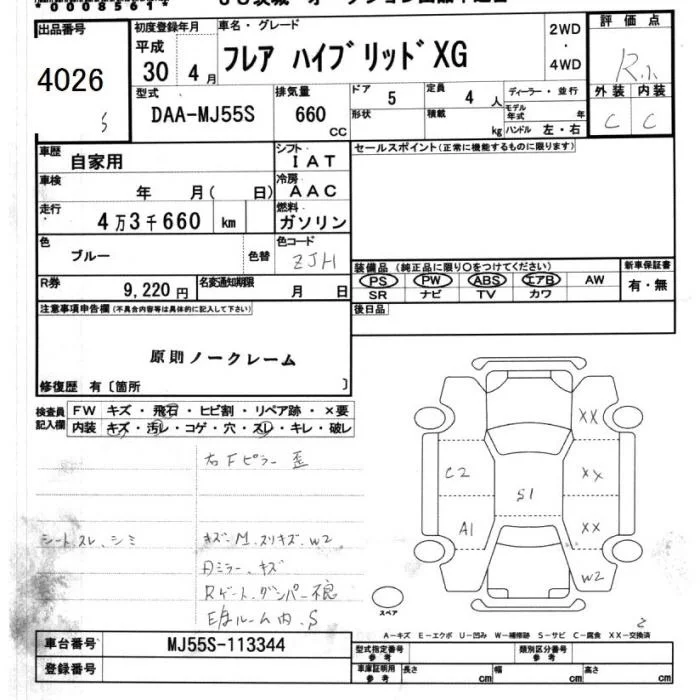 *00085614
出品番号
4026
S
初度登録年月
平成
30 4月
車名・グレード
フレア ハイブリッド XG
2WD
・
4WD
評価点
R小
外装 内装
C C
型式
DAA-MJ55S
排気量
660
CC
ドア
5
定員
4 人
形状
積載
kg
ディーラー・並行
モデル年式 年
ハンドル 左・右
車歴
自家用
シフト
IAT
セールスポイント(正常に機能するものに限ります)
車検
年 月( 日)
冷房
AAC
走行
4万3千660 km
燃料
ガソリン
色
ブルー
色替
色コード
ZJH
装備品 (純正品に限り○をつけてください)
新車保証書
PS PW ABS エアB AW
有・無
SR ナビ TV カワ
R券
9,220円
名変通知期限
月 日
後日品
注意事項申告欄(不具合内容等は具体的に記入して下さい)
原則ノークレーム
修復歴 有〔箇所 〕
検査員記入欄
FW キズ・飛石・ヒビ割・リペア跡・×要
内装 キズ・汚レ・コゲ・穴・スレ・キレ・破レ
右Fピラー歪
シートスレ、シミ
キズ-M、スリキズ、W2
ミラー、キズ
Rゲート、ダンパー不良
ルーム内、S
XX
C2
XX
S1
A1
XX
W2
スペア
2
A-キズ E-エクボ U-凹み W-補修跡 S-サビ C-腐食 XX-交換済
車台番号
MJ55S-113344
登録番号
型式指定番号
参考
類別区分番号
参考
車庫証明用
参考
長さ cm 幅 cm 高さ cm